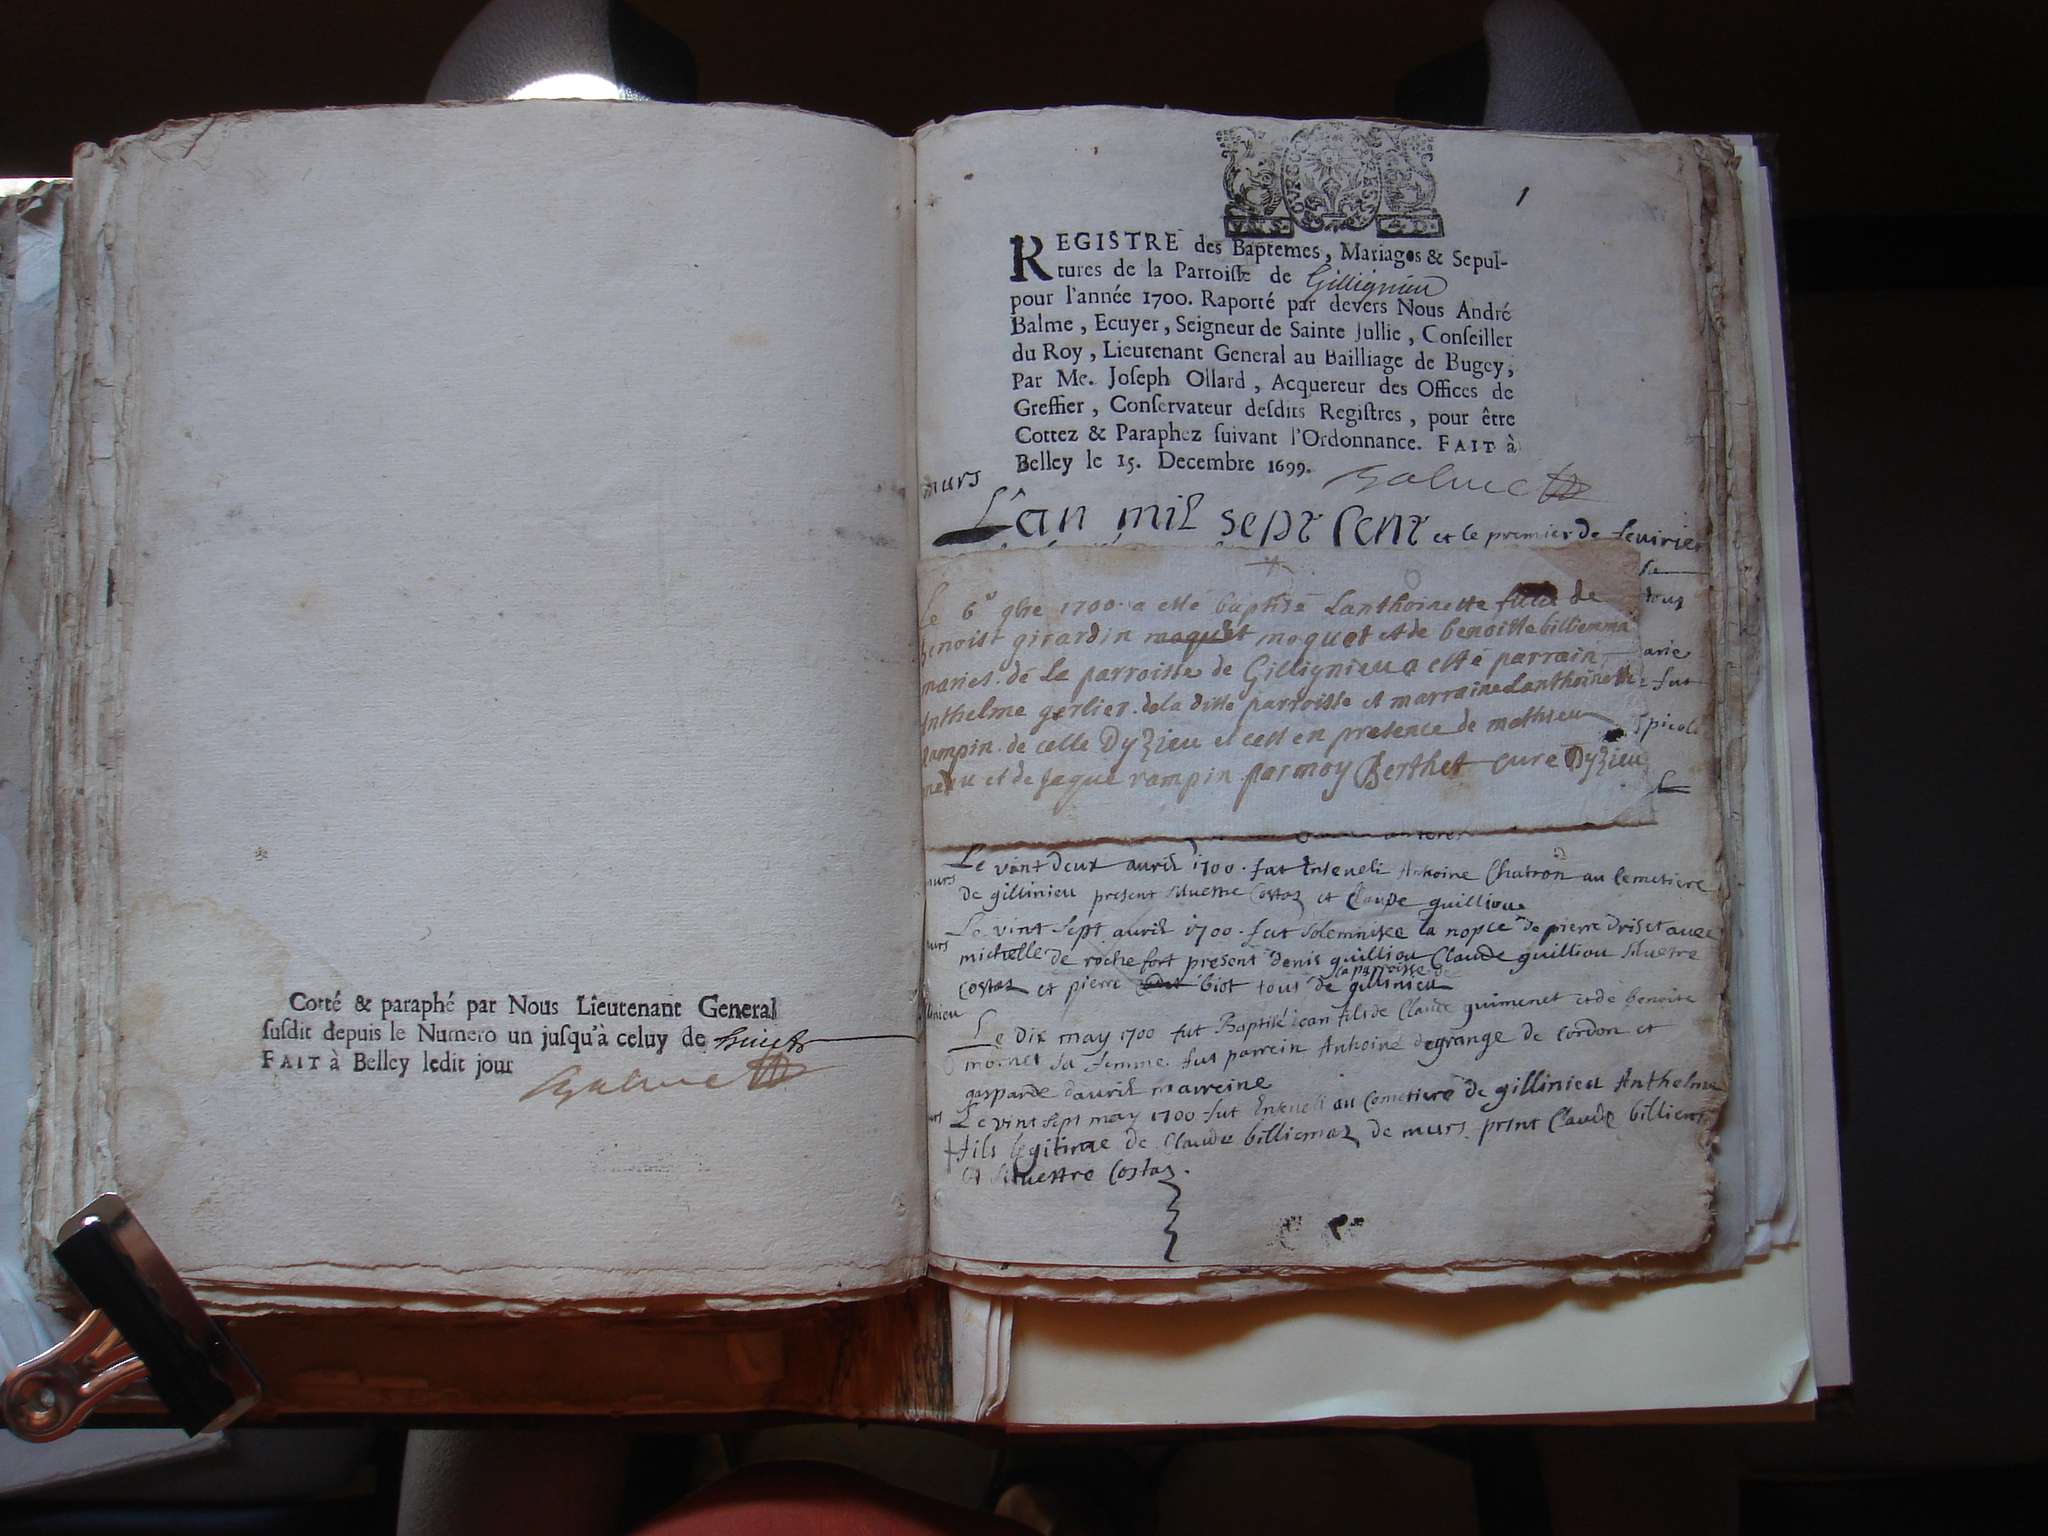 Cotté & paraphé par Nous Lieutenant General
susdit depuis le Numero un jusqu'à celuy de huict
FAIT à Belley ledit jour
Balme
1
REGISTRE des Baptemes, Mariages & Sepul-
tures de la Parroisse de Gillignieu
pour l'année 1700. Raporté par devers Nous André
Balme, Ecuyer, Seigneur de Sainte Jullie, Conseiller
du Roy, Lieutenant General au Bailliage de Bugey,
Par Me. Joseph Ollard, Acquereur des Offices de
Greffier, Conservateur desdits Registres, pour être
Cottez & Paraphez suivant l'Ordonnance. FAIT à
Belley le 15. Decembre 1699.
Balme
murs
L'an mil sept cent et le premier de feuirier
Le 6e 9bre 1700 a esté baptisé Lanthoinette fille de
benoist girardin moquet et de benoitte billiemma
mariés de La parroisse de Gillignieu a esté parrain
Anthelme gerlier de la ditte parroisse et marraine Lanthoinette
rampin de celle Dyzieu et cest en presence de mathieu
et de jaque rampin par moy Berthet cure Dyzieu
tous
arie
fut
murs
Le vint deux auril 1700 fut Enseueli Antoine Chatron au Cemetiere
de gillinieu present Siluestre Costaz et Claude guilliou
murs
Le vint sept auril 1700 fut solemnisee la nopce de pierre driset auec
michelle de rochefort present denis guilliou Claude guilliou Siluestre
la parroisse de
Costaz et pierre biot tous de gillinieu
gillinieu
Le dix may 1700 fut Baptisé jean fils de Claude guimenet et de benoite
mornet sa femme fut parrein Antoine degrange de cordon et
gasparde dauril marreine
murs
Le vint sept may 1700 fut Enseueli au Cemetiere de gillinieu Anthelme
fils legitime de Claude billiemaz de murs prnt Claude billiemaz
et Siluestre Costaz.